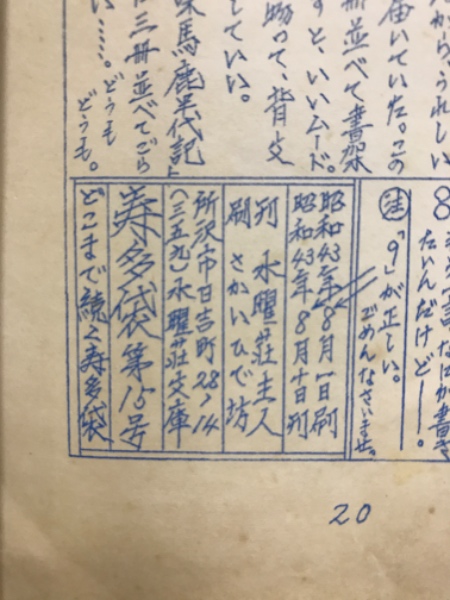 だから、うれしい
届いていた。この
冊並べて書架
すと、いいムード。
賜って、背文
していい。
味馬鹿年代記」
三冊並べてごら
い……。どうも
どうも。
8
たいんだけど――。
注 「9」が正しい。
ごめんなさいませ。
昭和43年8月一日刷
昭和43年8月十日刊
刊 水曜荘主人
刷 さかいひで坊
所沢市日吉町28ノ14
(三五九)水曜荘文庫
寿多袋 第15号
どこまで続く寿多袋
20